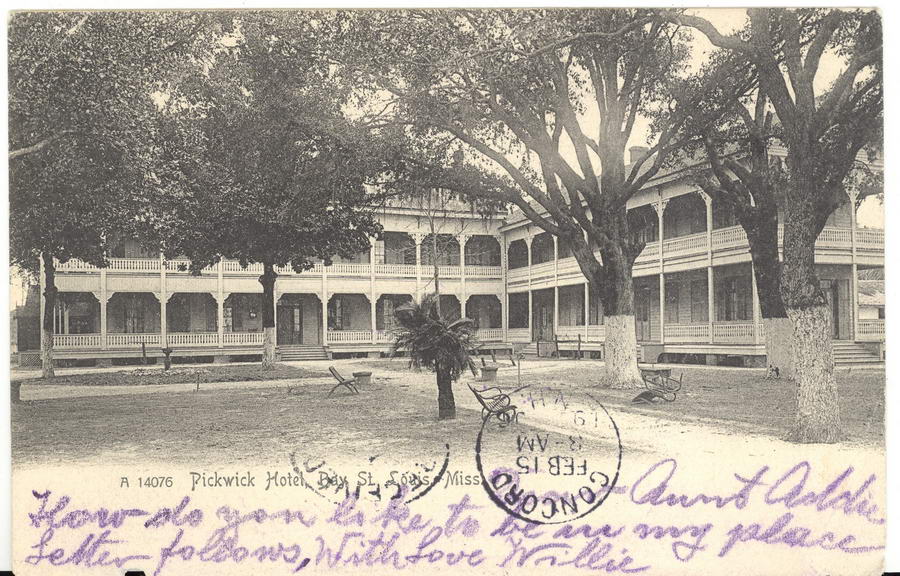 A 14076 Pickwick Hotel, Bay St. Louis, Miss.
CONCORD
FEB 15
AM
19
Aunt Addie
How do you like to be in my place
Letter follows, With Love Willie